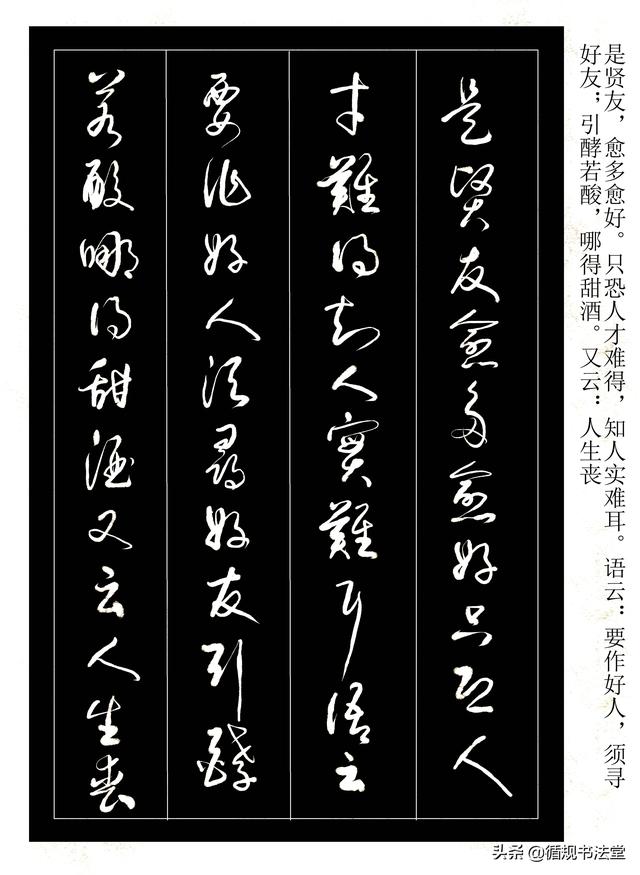 是贤友，愈多愈好。只恐人才难得，知人实难耳。语云：要作好人，须寻
好友；引酵若酸，哪得甜酒。又云：人生丧
是賢友愈多愈好只恐人
才難得知人實難耳語云
要作好人須尋好友引酵
若酸哪得甜酒又云人生喪
头条 @循规书法堂